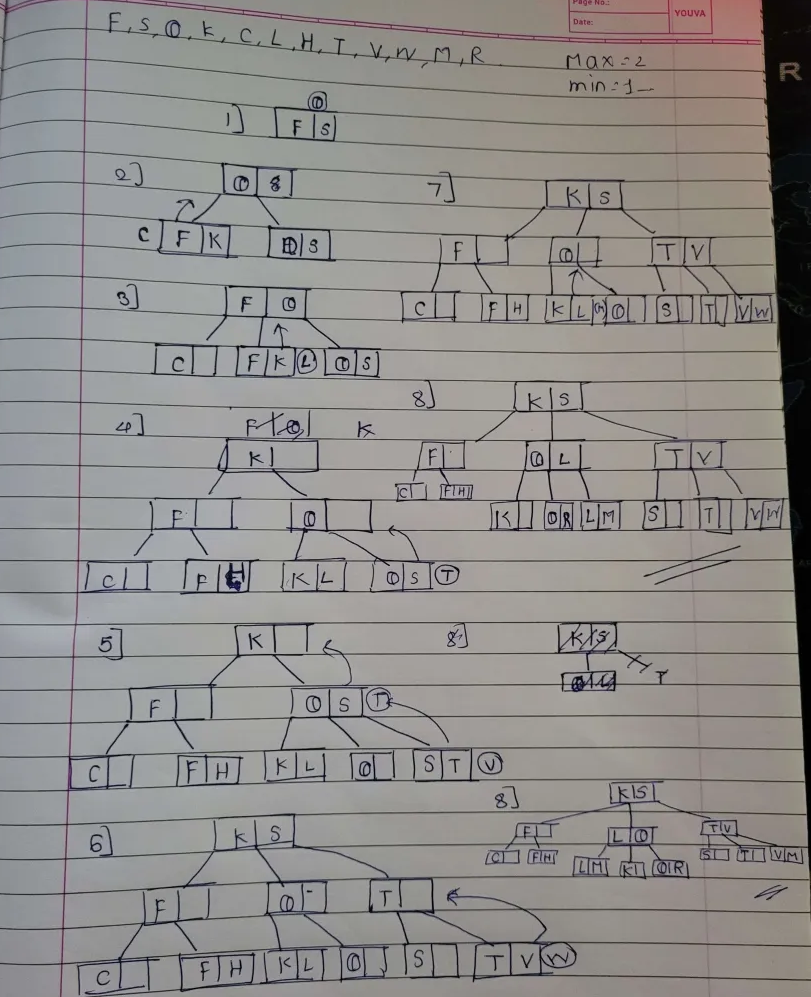 Page No.:
Date:
YOUVA
R
F, S, O, K, C, L, H, T, V, W, M, R
Max = 2
min = 1
1]
O
F S
2]
O S
C F K
O S
3]
F O
C
F K L
O S
4]
F O
K
K
F
O
C
F H
K L
O S T
5]
K
F
O S T
C
F H
K L
O
S T V
6]
K S
F
O
T
C
F H
K L
O
S
T V W
7]
K S
F
O
T V
C
F H
K L M
O
S
T
V W
8]
K S
F
O L
T V
C
F H
K
O R
L M
S
T
V W
8]
K S
T
8]
K S
F
L O
T V
C
F H
L M
K
O R
S
T
V M